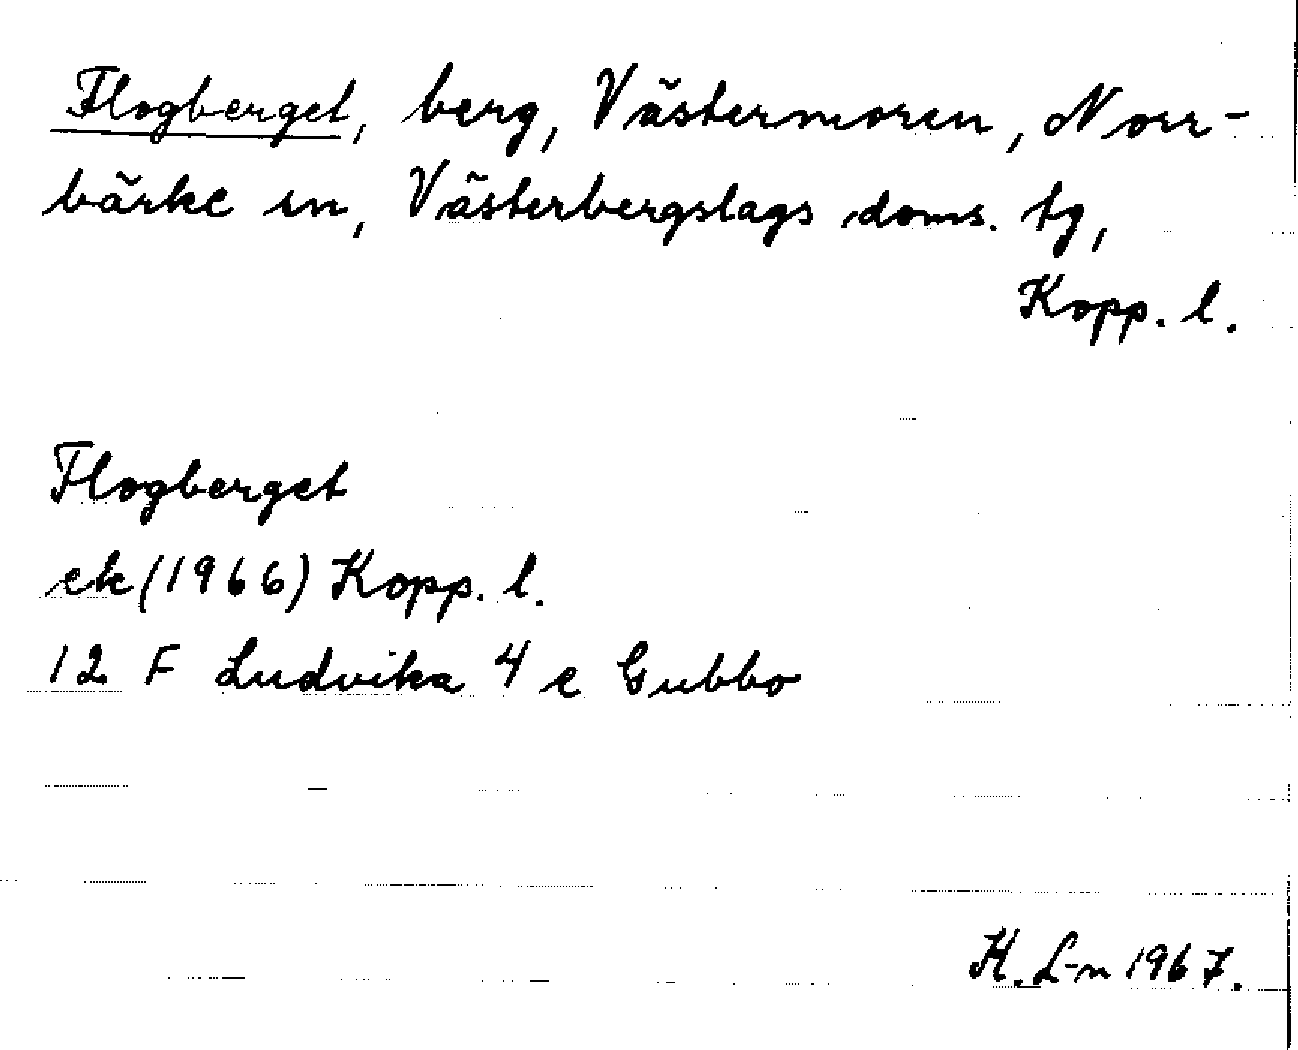 Flogberget, berg, Västermoren, Norr-
bärke sn, Västerbergslags doms. tg,
Kopp. l.
Flogberget
ek (1966) Kopp. l.
12 F Ludvika 4 e Gubbo
K. L-n 1967.